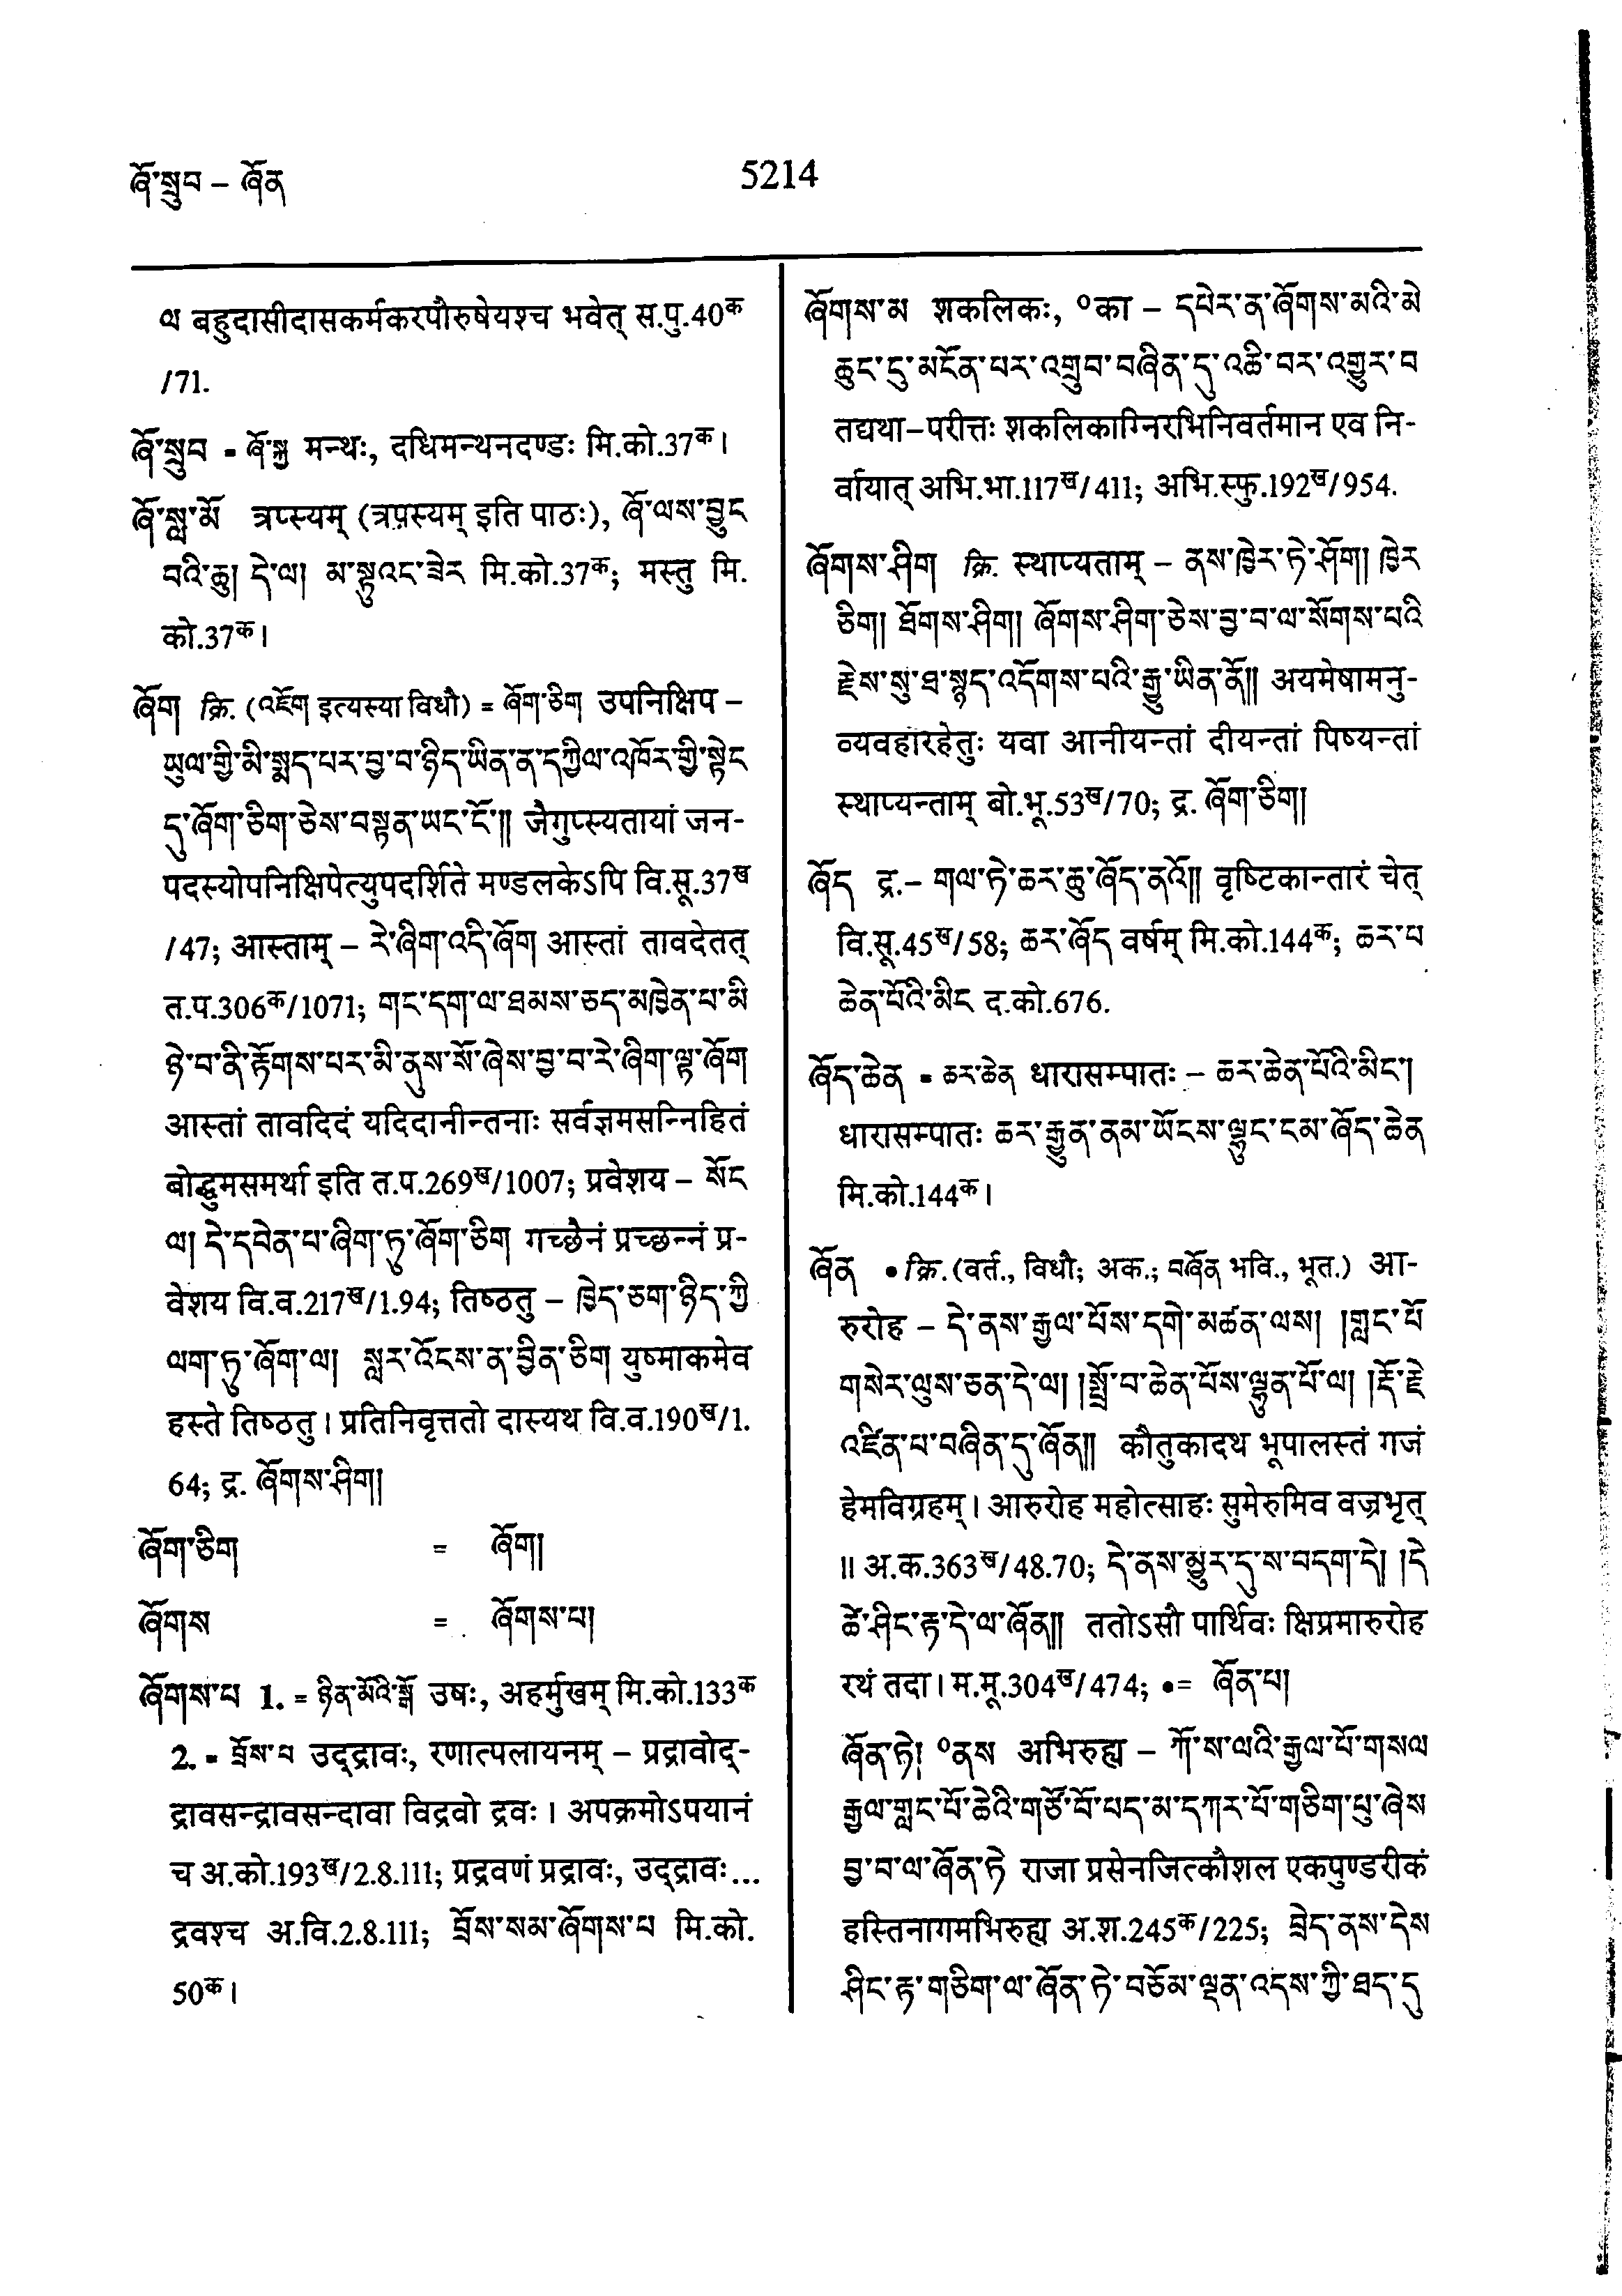 ཞོ་སྲུབ – ཞོན
5214
ལ बहुदासीदासकर्मकरपौरुषेयश्च भवेत् स.पु.40क
/71.
ཞོ་སྲུབ = ཞོ་སྐྱ मन्थः, दधिमन्थनदण्डः मि.को.37क।
ཞོ་སླ་མོ त्रप्स्यम् (त्रपस्यम् इति पाठः), ཞོ་ལས་བྱུང
བའི་ཆུ། དེ་ལ། མ་སྟུའང་ཟེར मि.को.37क; मस्तु मि.
को.37क।
ཞོག क्रि. (འཇོག इत्यस्या विधौ) = ཞོག་ཅིག उपनिक्षिप –
ཡུལ་གྱི་མི་སྨད་པར་བྱ་བ་ཉིད་ཡིན་ན་དཀྱིལ་འཁོར་གྱི་སྟེང
དུ་ཞོག་ཅིག་ཅེས་བསྟན་ཡང་ངོ་།། जैगुप्स्यतायां जन-
पदस्योपनिक्षिपेत्युपदर्शिते मण्डलकेऽपि वि.सू.37ख
/47; आस्ताम् – རེ་ཞིག་འདི་ཞོག आस्तां तावदेतत्
त.प.306क/1071; གང་དག་ལ་ཐམས་ཅད་མཁྱེན་པ་མི
ཉེ་བ་ནི་རྟོགས་པར་མི་ནུས་སོ་ཞེས་བྱ་བ་རེ་ཞིག་ལྟ་ཞོག
आस्तां तावदिदं यदिदानीन्तनाः सर्वज्ञमसन्निहितं
बोद्धुमसमर्था इति त.प.269ख/1007; प्रवेशय – སོང
ལ། དེ་དབེན་པ་ཞིག་ཏུ་ཞོག་ཅིག गच्छैनं प्रच्छन्नं प्र-
वेशय वि.व.217ख/1.94; तिष्ठतु – ཁྱེད་ཅག་ཉིད་ཀྱི
ལག་ཏུ་ཞོག་ལ། སླར་འོངས་ན་བྱིན་ཅིག युष्माकमेव
हस्ते तिष्ठतु। प्रतिनिवृत्ततो दास्यथ वि.व.190ख/1.
64; द्र. ཞོགས་ཤིག།
ཞོག་ཅིག = ཞོག།
ཞོགས = ཞོགས་པ།
ཞོགས་པ 1. = ཉིན་མོའི་སྒོ उषः, अहर्मुखम् मि.को.133क
2. = བྲོས་པ उद्द्रावः, रणात्पलायनम् – प्रद्रावोद्-
द्रावसन्द्रावसन्दावा विद्रवो द्रवः। अपक्रमोऽपयानं
च अ.को.193ख/2.8.111; प्रद्रवणं प्रद्रावः, उद्द्रावः...
द्रवश्च अ.वि.2.8.111; བྲོས་སམ་ཞོགས་པ मि.को.
50क।
ཞོགས་མ शकलिकः, ०का – དཔེར་ན་ཞོགས་མའི་མེ
ཆུང་དུ་མངོན་པར་འགྲུབ་བཞིན་དུ་འཆི་བར་འགྱུར་བ
तद्यथा–परीत्तः शकलिकाग्निरभिनिवर्तमान एव नि-
र्वायात् अभि.भा.117ख/411; अभि.स्फु.192ख/954.
ཞོགས་ཤིག क्रि. स्थाप्यताम् – ནས་ཁྱེར་ཏེ་ཤོག། ཁྱེར
ཅིག། ཐོགས་ཤིག། ཞོགས་ཤིག་ཅེས་བྱ་བ་ལ་སོགས་པའི
རྗེས་སུ་ཐ་སྙད་འདོགས་པའི་རྒྱུ་ཡིན་ནོ།། अयमेषामनु-
व्यवहारहेतुः यवा आनीयन्तां दीयन्तां पिष्यन्तां
स्थाप्यन्ताम् बो.भू.53ख/70; द्र. ཞོག་ཅིག།
ཞོད द्र.– གལ་ཏེ་ཆར་ཆུ་ཞོད་ནའོ།། वृष्टिकान्तारं चेत्
वि.सू.45ख/58; ཆར་ཞོད वर्षम् मि.को.144क; ཆར་པ
ཆེན་པོའི་མིང द.को.676.
ཞོད་ཆེན = ཆར་ཆེན धारासम्पातः – ཆར་ཆེན་པོའི་མིང་།
धारासम्पातः ཆར་རྒྱུན་ནམ་ཡོངས་ལྷུང་ངམ་ཞོད་ཆེན
मि.को.144क।
ཞོན • क्रि. (वर्त., विधौ; अक.; བཞོན भवि., भूत.) आ-
रुरोह – དེ་ནས་རྒྱལ་པོས་དགེ་མཚན་ལས། །གླང་པོ
གསེར་ལུས་ཅན་དེ་ལ། །སྤྲོ་བ་ཆེན་པོས་ལྷུན་པོ་ལ། །རྡོ་རྗེ
འཛིན་པ་བཞིན་དུ་ཞོན།། कौतुकादथ भूपालस्तं गजं
हेमविग्रहम्। आरुरोह महोत्साहः सुमेरुमिव वज्रभृत्
॥ अ.क.363ख/48.70; དེ་ནས་མྱུར་དུ་ས་བདག་དེ། །དེ
ཚེ་ཤིང་རྟ་དེ་ལ་ཞོན།། ततोऽसौ पार्थिवः क्षिप्रमारुरोह
रथं तदा। म.मू.304ख/474; •= ཞོན་པ།
ཞོན་ཏེ། ०ནས अभिरुह्य – ཀོ་ས་ལའི་རྒྱལ་པོ་གསལ
རྒྱལ་གླང་པོ་ཆེའི་གཙོ་བོ་པད་མ་དཀར་པོ་གཅིག་པུ་ཞེས
བྱ་བ་ལ་ཞོན་ཏེ राजा प्रसेनजित्कौशल एकपुण्डरीकं
हस्तिनागमभिरुह्य अ.श.245क/225; བྲེད་ནས་དེས
ཤིང་རྟ་གཅིག་ལ་ཞོན་ཏེ་བཅོམ་ལྡན་འདས་ཀྱི་ཐད་དུ